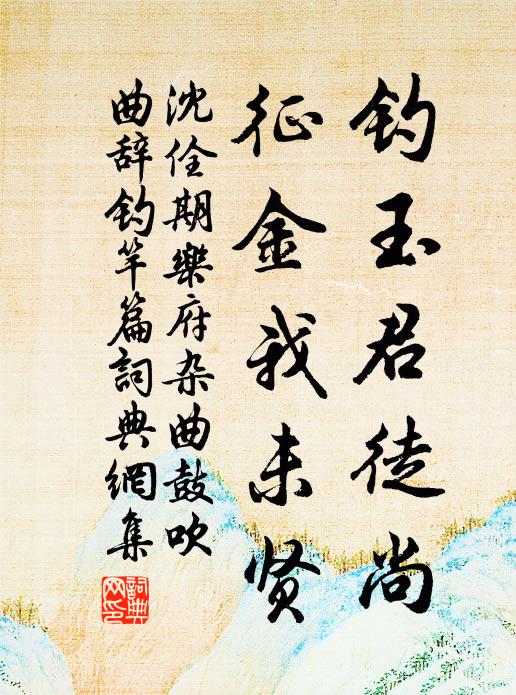 钓玉君徒尚
征金我未贤
沈佺期樂府杂曲鼓吹
曲辞钓竿篇詞典網集
詞典
网印